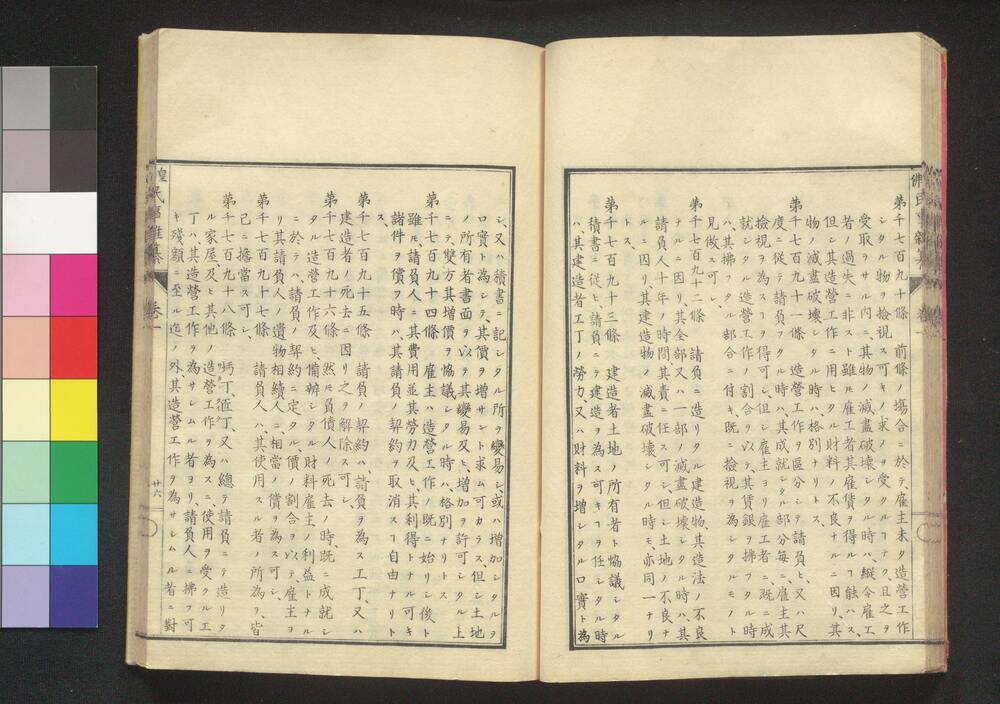 第千七百九十條　前條ノ塲合ニ於テ、雇主未タ造營工作
シタル物ヲ檢視ス可キノ求メヲ受クルヿナク、且之ヲ
受取ラサル内ニ、其物ノ滅盡破壞シタル時ハ、縱令雇工
者ノ過失ニ非スト雖𪜈雇工者其雇賃ヲ得ルヿ能ハス、
但シ其造營工作ニ用ヒタル財料ノ不良ナルニ因リ、其
物ノ滅盡破壞シタル時ハ、格別ナリトス、
第千七百九十一條　造營工作ヲ區分シテ請負ヒ、又ハ尺
度ニ從テ請負フタル時ハ、其成就シタル部分毎ニ、雇主其
檢視ヲ為スヿヲ得可シ、但シ雇主ヨリ雇工者ニ、既ニ成
就シタル造營工作ノ割合ヲ以テ、其賃銀ヲ拂フタル時
ハ、其拂フタル部分ニ付キ、既ニ撿視ヲ為シタルモノト
見做ス可シ、
第千七百九十二條　請負ニ造リタル建造物、其造法ノ不良
ナルニ因リ、其全部又ハ一部ノ滅盡破壞シタル時ハ、其
請負人十年ノ時間其責ニ任ス可シ、但シ土地ノ不良ナ
ルニ因リ、其建造物ノ滅盡破壞シタル時モ、亦同一ナリ
トス、
第千七百九十三條　建造者土地ノ所有者ト協議シタル
積書ニ從ヒ、請負ニテ建造ヲ為ス可キヿヲ任シタル時
ハ、其建造者工丁ノ勞力、又ハ財料ヲ增シタル口實ト為
シ、又ハ積書ニ記シタル所ヲ變易シ或ハ增加シタルヲ
口實ト為シテ、其價ヲ增サント求ム可カラス、但シ土地
ノ所有者書面ヲ以テ其變易及ヒ增加ヲ許可シタル上
ニテ、雙方其增價ヲ協議シタル時ハ、格別ナリトス、
第千七百九十四條　雇主ハ造營工作ノ既ニ始リシ後ト
雖𪜈請負人ニ其費用並其勞力及ヒ其利得トナル可キ
諸件ヲ償フ時ハ、其請負ノ契約ヲ取消スヿ自由ナリト
ス、
第千七百九十五條　請負ノ契約ハ、請負ヲ為ス工丁、又ハ
建造者ノ死去ニ因リ之ヲ解除ス可シ、
第千七百九十六條　然𪜈負債人ノ死去ノ時、既ニ成就シ
タル造營工作及ヒ、備辨シタル財料雇主ノ利益トナル
ニ於テハ、請負ノ契約ニ定メタル、價ノ割合ヲ以テ、雇主ヨ
リ其請負人ノ遺物相續人ニ相當ノ償ヲ為ス可シ、
第千七百九十七條　請負人ハ、其使用スル者ノ所為ヲ、皆
己ニ擔當ス可シ、
第千七百九十八條　圬丁、匠丁、又ハ總テ請負ニテ造リタ
ル家屋及ヒ其他ノ造營工作ヲ為スニ、使用ヲ受クル工
丁ハ、其造營工作ヲ為サシムル者ヨリ、請負人ニ拂フ可
キ殘額ニ至ル迄ノ外、其造營工作ヲ為サシムル者ニ對
卷一
廿六